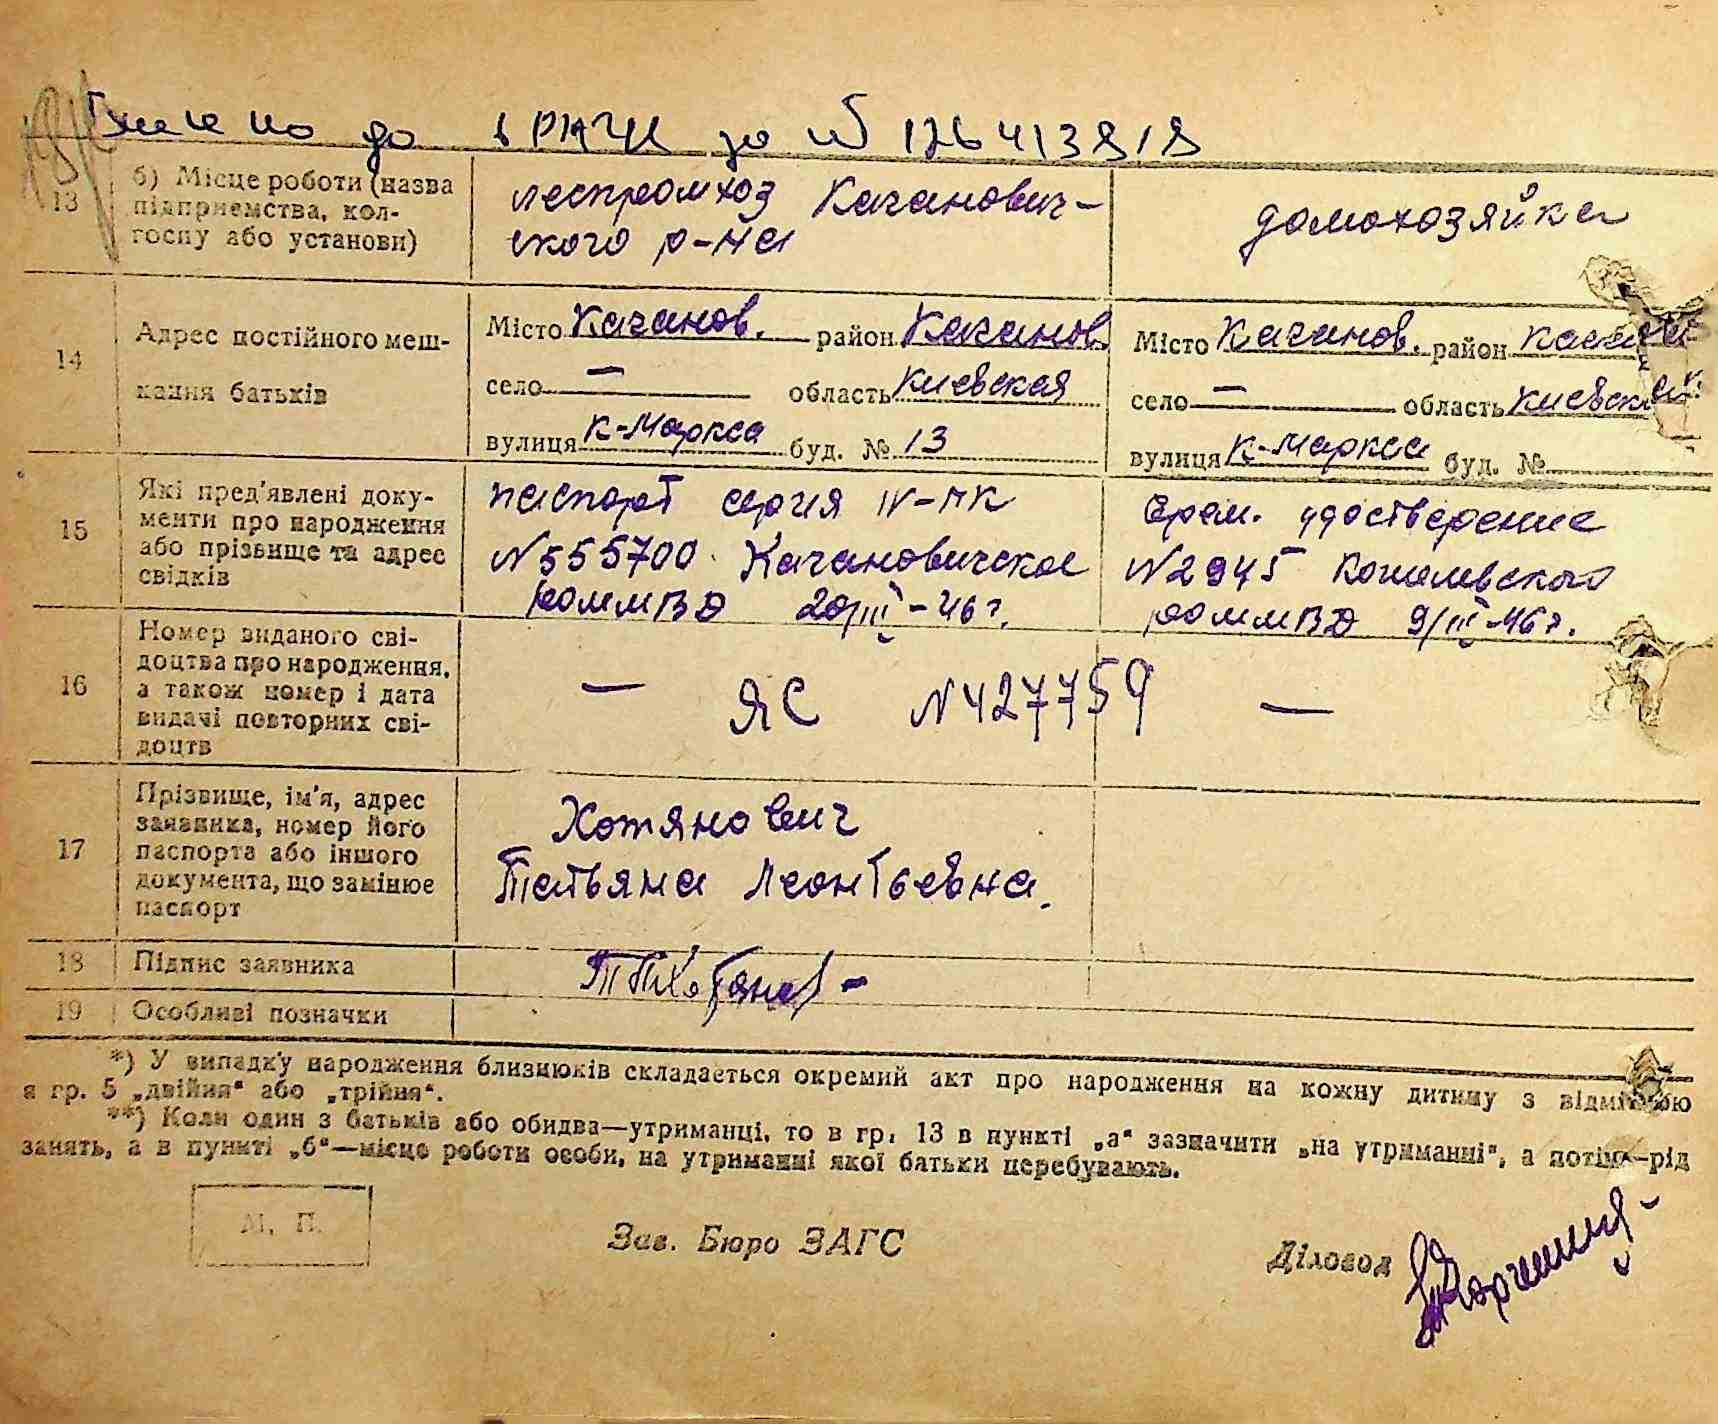 до ДРАЦС за № 126413818
13
б) Місце роботи (назва підприємства, колгоспу або установи)
леспромхоз Кагановичского р-на
домохозяйка
14
Адрес постійного мешкання батьків
Місто Каганов. район Каганов.
село — область Киевская
вулиця К-Маркса буд. № 13
Місто Каганов. район
село — область Киевская
вулиця К-Маркса буд. №
15
Які пред'явлені документи про народження або прізвище та адрес свідків
паспорт серия IV-ПК
№555700 Кагановичское
РОММВД 20/III-46 г.
Врем. удостверение
№2945
РОММВД 9/III-46 г.
16
Номер виданого свідоцтва про народження, а також номер і дата видачі повторних свідоцтв
— ЯС №427759 —
17
Прізвище, ім'я, адрес заявника, номер його паспорта або іншого документа, що замінює паспорт
Хотянович
Татьяна Леонтьевна.
18
Підпис заявника
19
Особливі позначки
*) У випадку народження близнюків складається окремий акт про народження на кожну дитину з відміткою
в гр. 5 „двійня“ або „трійня“.
**) Коли один з батьків або обидва—утриманці, то в гр. 13 в пункті „а“ зазначити „на утриманні“, а потім—рід
занять, а в пункті „б“—місце роботи особи, на утриманні якої батьки перебувають.
М. П.
Зав. Бюро ЗАГС
Діловод